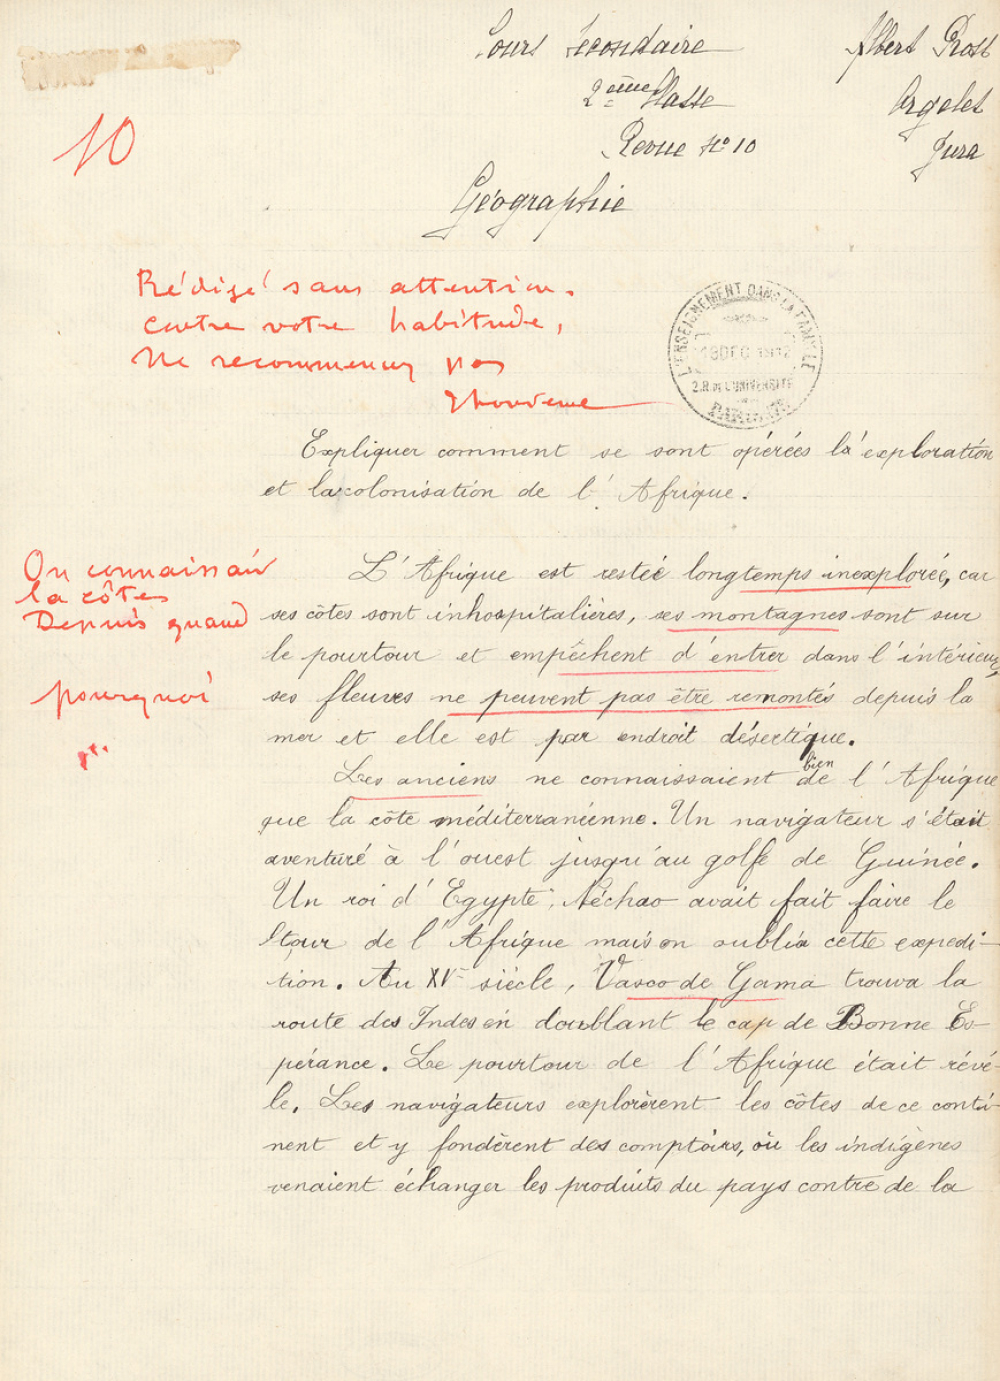 Cours Secondaire
Albert Prost
2ème Classe
Argelet
Revue No 10
Jura
10
Géographie
Rédigé sans attention.
contre votre habitude,
Ne recommencez pas
L'ENSEIGNEMENT DANS LA FAMILLE
18 DEC 1912
2.R. DE L'UNIVERSITÉ
PARIS
Expliquer comment se sont opérées l'exploration
et la colonisation de l'Afrique.
On connaissait
la côtes
Depuis quand
pourquoi
L'Afrique est restée longtemps inexplorée, car
ses côtes sont inhospitalières, ses montagnes sont sur
le pourtour et empêchent d'entrer dans l'intérieur,
ses fleuves ne peuvent pas être remontés depuis la
mer et elle est par endroit désertique.
Les anciens ne connaissaient bien de l'Afrique
que la côte méditerranéenne. Un navigateur s'était
aventuré à l'ouest jusqu'au golfe de Guinée.
Un roi d'Egypte, Néchao avait fait faire le
tour de l'Afrique mais on oublia cette expedi-
tion. Au XVe siècle, Vasco de Gama trouva la
route des Indes en doublant le cap de Bonne Es-
pérance. Le pourtour de l'Afrique était révé-
le. Les navigateurs explorèrent les côtes de ce conti-
nent et y fondèrent des comptoirs, où les indigènes
venaient échanger les produits du pays contre de la